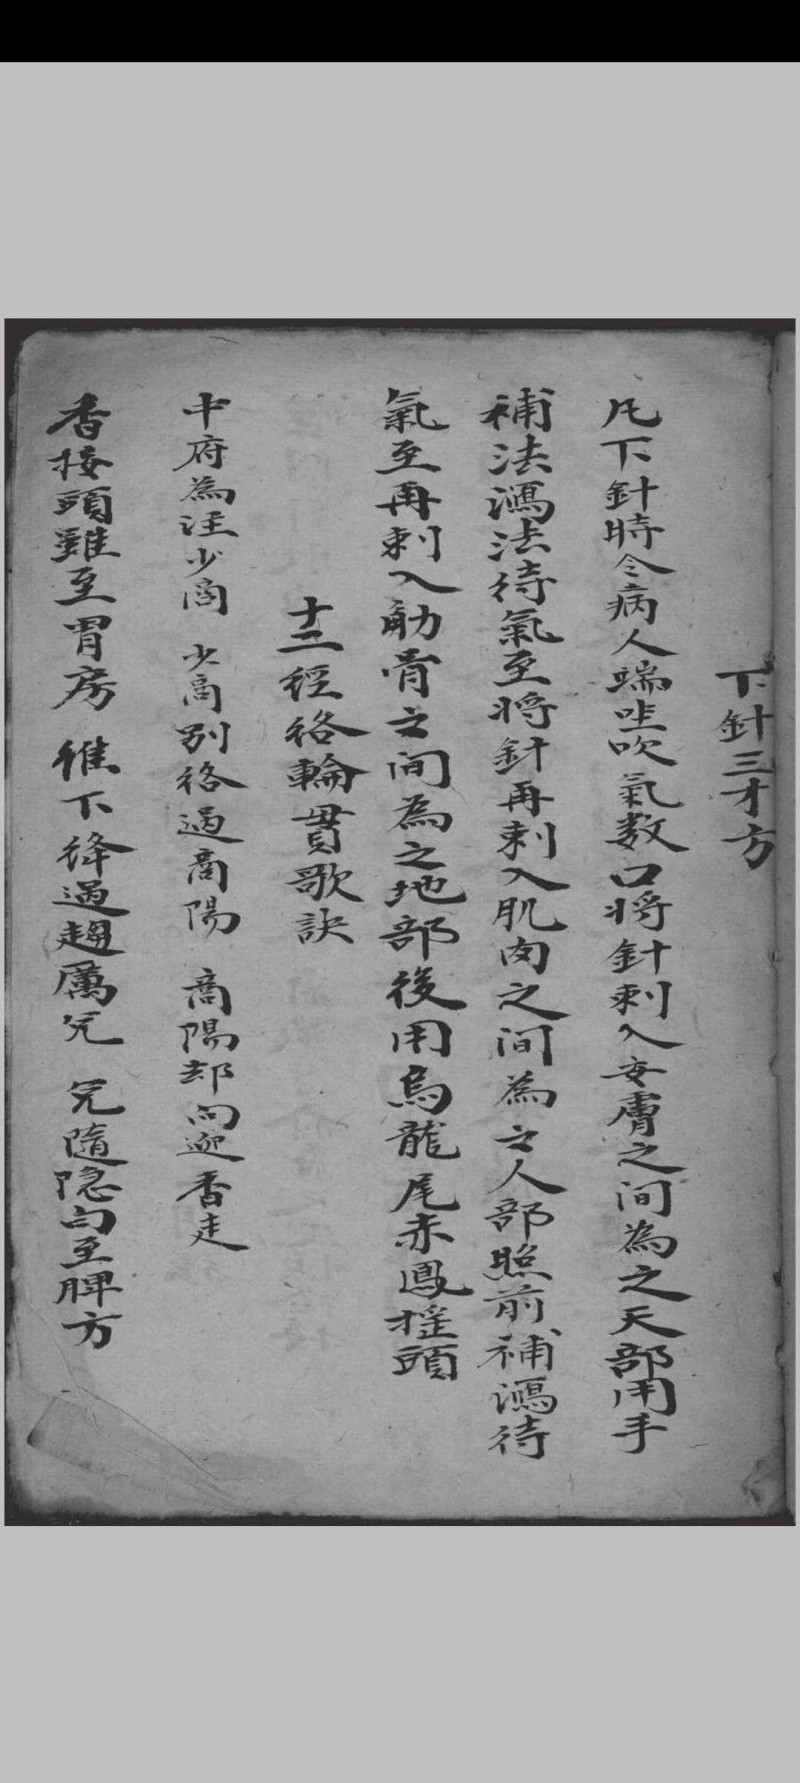 下針三才方
凡下針時令病人端坐吹氣数口将針刺入安膚之间為之天部用手
補法㵠法待氣至将針再刺入肌肉之间為之人部照前補㵠待
氣至再刺入觔骨之间為之地部後用烏龍尾赤鳳摇頭
十二經络輪貫歌訣
中府為注少商 少商别络過商陽 商陽却向迎香走
香接頭雖至胃房 維下绛過趨厲兊 兊隨隐白至脾方